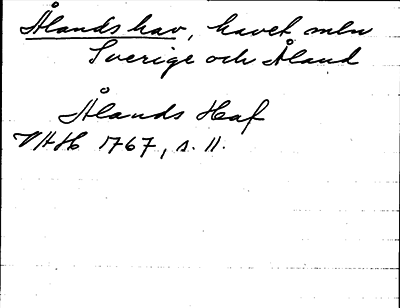 Ålands hav, havet mln
Sverige och Åland
Ålands Haf
VAH 1767, s. 11.